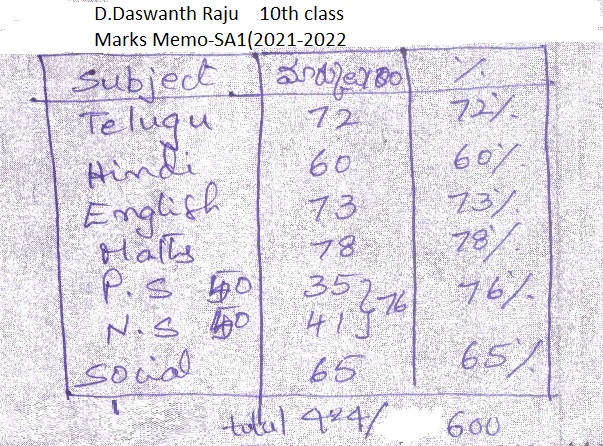 D.Daswanth Raju 10th class
Marks Memo-SA1(2021-2022
Subject %
Telugu 72 72%
Hindi 60 60%
English 73 73%
Maths 78 78%
P.S 50 35 } 76 76%
N.S 50 41
Social 65 65%
total 424/ 600